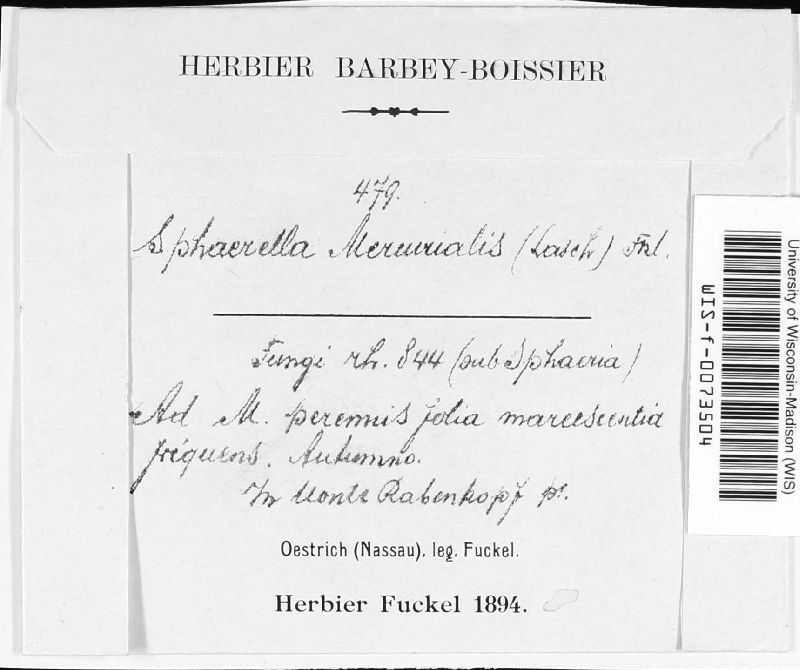 HERBIER BARBEY-BOISSIER
479.
Sphaerella Mercurialis (Lasch) Fkl.
Fungi rh. 844 (sub Sphaeria)
Ad M. perennis folia marcescentia
frequens. Autumno.
In Monte Rabenkopf pr.
Oestrich (Nassau). leg. Fuckel.
Herbier Fuckel 1894.
WIS-f-0073504
University of Wisconsin-Madison (WIS)